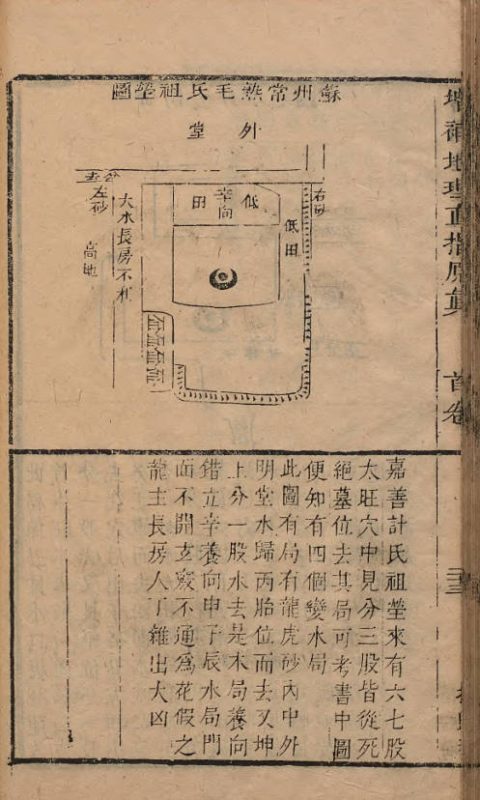 增補地理直指原眞
首卷
蘇州常熟毛氏祖塋圖
外堂
右砂
低田
辛向
低
田
左砂
大水長房不利
高地
嘉善計氏祖塋來有六七股
太旺穴中見分三股皆從死
絕墓位去其局可考書中圖
便知有四個變水局
此圖有局有龍虎砂內中外
明堂水歸丙胎位而去又坤
上分一股水去是木局養向
錯立辛養向申子辰水局門
面不開玄竅不通爲花假之
龍主長房人丁雜出大凶